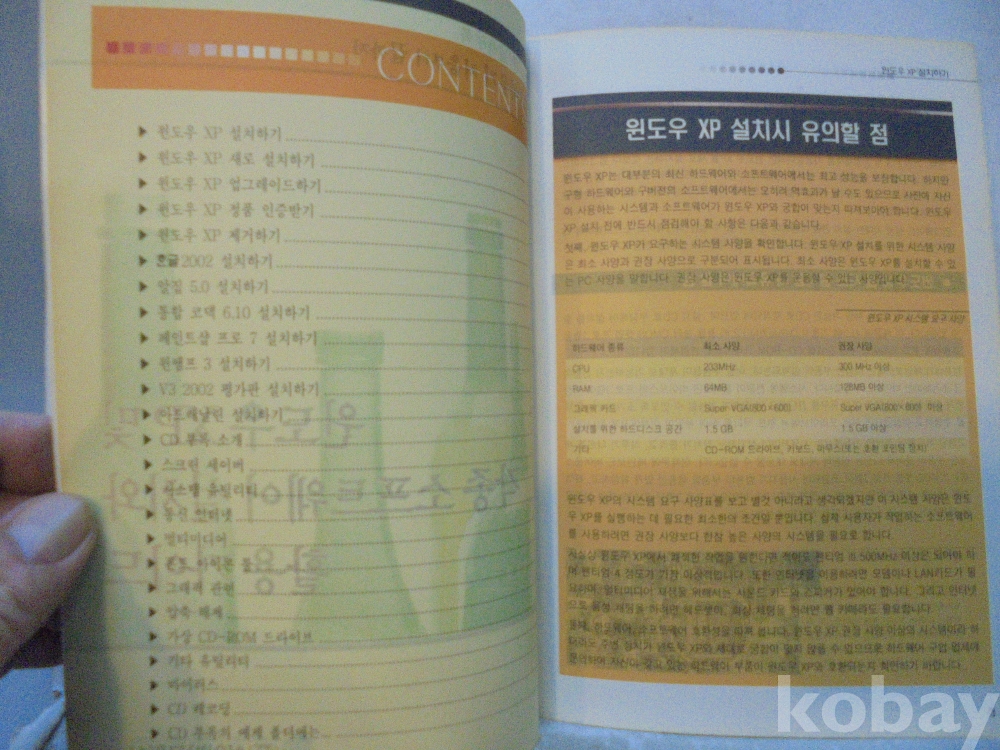 CONTENT
▶ 윈도우 XP 설치하기
▶ 윈도우 XP 새로 설치하기
▶ 윈도우 XP 업그레이드하기
▶ 윈도우 XP 정품 인증받기
▶ 윈도우 XP 제거하기
▶ 한글 2002 설치하기
▶ 알집 5.0 설치하기
▶ 통합 코덱 6.10 설치하기
▶ 페인트샵 프로 7 설치하기
▶ 윈앰프 3 설치하기
▶ V3 2002 평가판 설치하기
▶ 아드레날린 설치하기
▶ CD 부록 소개
▶ 스크린 세이버
▶ 시스템 유틸리티
▶ 통신 인터넷
▶ 멀티미디어
▶ 폰트 아이콘 툴
▶ 그래픽 관련
▶ 압축 해제
▶ 가상 CD-ROM 드라이브
▶ 기타 유틸리티
▶ 바이러스
▶ CD 레코딩
▶ CD 부록의 예제 폴더에는
윈도우 XP 설치하기
윈도우 XP 설치시 유의할 점
윈도우 XP는 대부분의 최신 하드웨어와 소프트웨어에서는 최고 성능을 보장합니다. 하지만
구형 하드웨어와 구버전의 소프트웨어에서는 오히려 역효과가 날 수도 있으므로 사전에 자신
이 사용하는 시스템과 소프트웨어가 윈도우 XP와 궁합이 맞는지 따져보아야 합니다. 윈도우
XP 설치 전에 반드시 점검해야 할 사항은 다음과 같습니다.
첫째, 윈도우 XP가 요구하는 시스템 사양을 확인합니다. 윈도우 XP 설치를 위한 시스템 사양
은 최소 사양과 권장 사양으로 구분되어 표시됩니다. 최소 사양은 윈도우 XP를 설치할 수 있
는 PC 사양을 말합니다. 권장 사양은 윈도우 XP를 운용할 수 있는 사양입니다.
윈도우 XP 시스템 요구 사양
하드웨어 종류 최소 사양 권장 사양
CPU 233MHz 300 MHz 이상
RAM 64MB 128MB 이상
그래픽 카드 Super VGA(800×600) Super VGA(800×600) 이상
설치를 위한 하드디스크 공간 1.5 GB 1.5 GB 이상
기타 CD-ROM 드라이브, 키보드, 마우스(또는 호환 포인팅 장치)
윈도우 XP의 시스템 요구 사양표를 보고 별것 아니라고 생각되겠지만 이 시스템 사양은 윈도
우 XP를 실행하는 데 필요한 최소한의 조건일 뿐입니다. 실제 사용자가 작업하는 소프트웨어
를 사용하려면 권장 사양보다 한참 높은 사양의 시스템을 필요로 합니다.
사실상 윈도우 XP에서 쾌적한 작업을 원한다면 적어도 펜티엄 III 500MHz 이상은 되어야 하
며 펜티엄 4 정도가 가장 이상적입니다. 또한 인터넷을 이용하려면 모뎀이나 LAN카드가 필
요하며, 멀티미디어 재생을 위해서는 사운드 카드와 스피커가 있어야 합니다. 그리고 인터넷
으로 음성 채팅을 하려면 마이크가, 화상 채팅을 하려면 웹 카메라도 필요합니다.
둘째, 하드웨어, 소프트웨어 호환성을 따져 봅니다. 윈도우 XP 권장 사양 이상의 시스템이라 하
더라도 주변 장치가 윈도우 XP와 제대로 궁합이 맞지 않을 수 있으므로 하드웨어 구입 업체에
문의하여 자신이 갖고 있는 하드웨어 부품이 윈도우 XP와 호환되는지 확인하기 바랍니다.
kobay